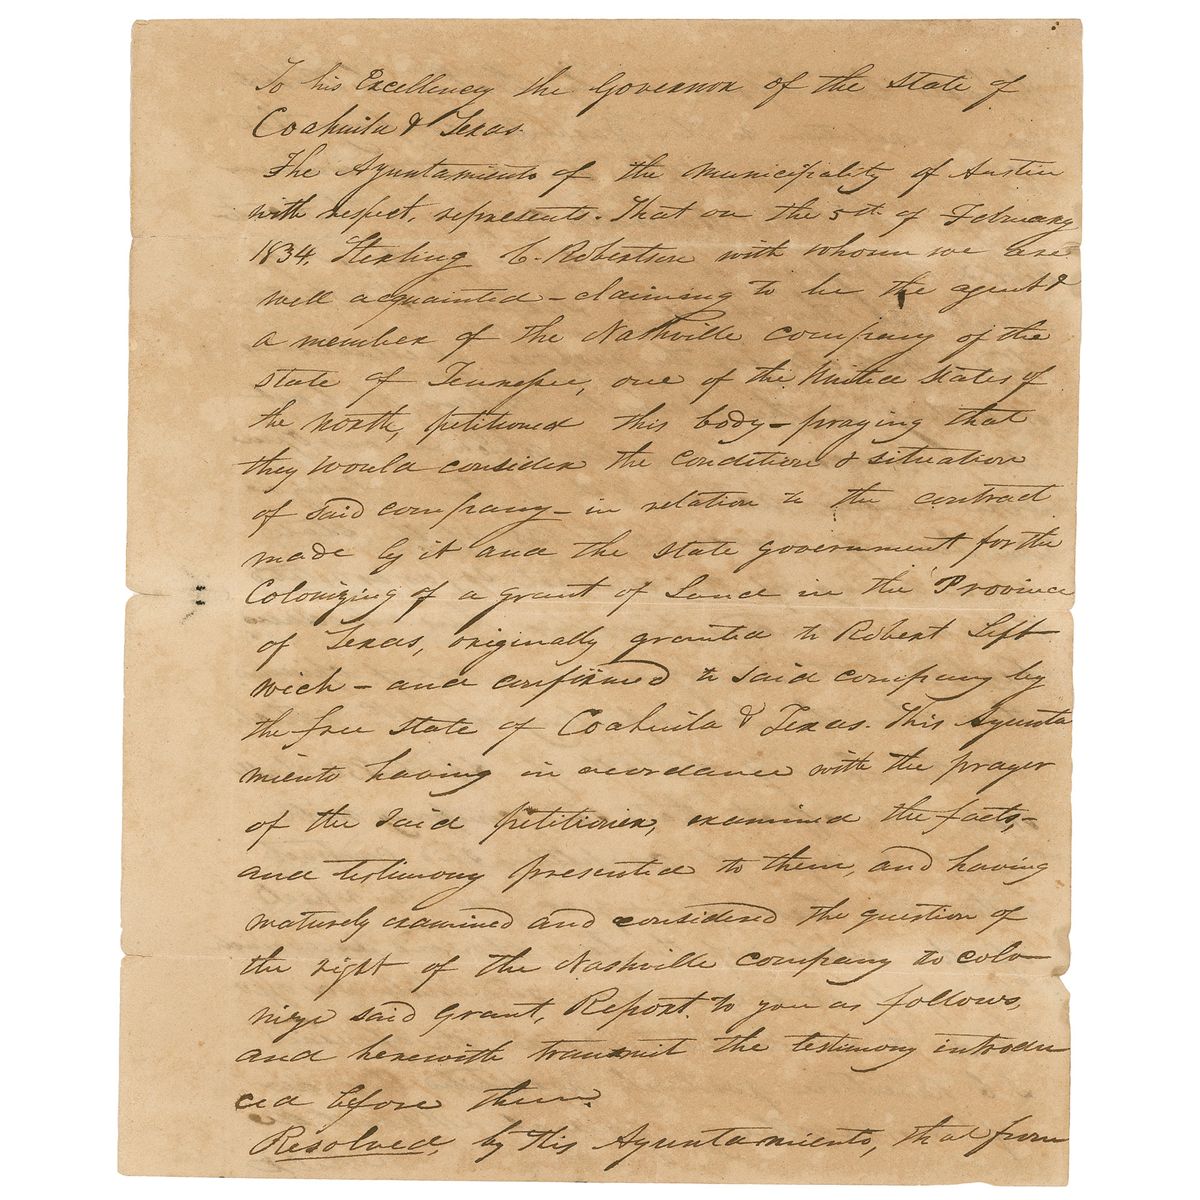 To his Excellency the Governor of the State of
Coahuila & Texas.
The Ayuntamiento of the Municipality of Austin
with respect, represents. That on the 5th of February
1834, Sterling C. Robertson with whom we are
well acquainted – claiming to be the agent &
a member of the Nashville company of the
State of Tennessee, one of the United States of
the North, petitioned this body – praying that
they would consider the condition & situation
of said company – in relation to the contract
made by it and the State government for the
Colonizing of a grant of Land in the Province
of Texas, originally granted to Robert Left-
wich – and confirmed to said company by
the free State of Coahuila & Texas. This Ayunta
miento having in accordance with the prayer
of the said petitioner, examined the facts, –
and testimony presented to them, and having
maturely examined and considered the question of
the right of the Nashville company to colo-
nize said Grant, Report to you as follows,
and herewith transmit the testimony introdu
ced before them.
Resolved, by this Ayuntamiento, that from